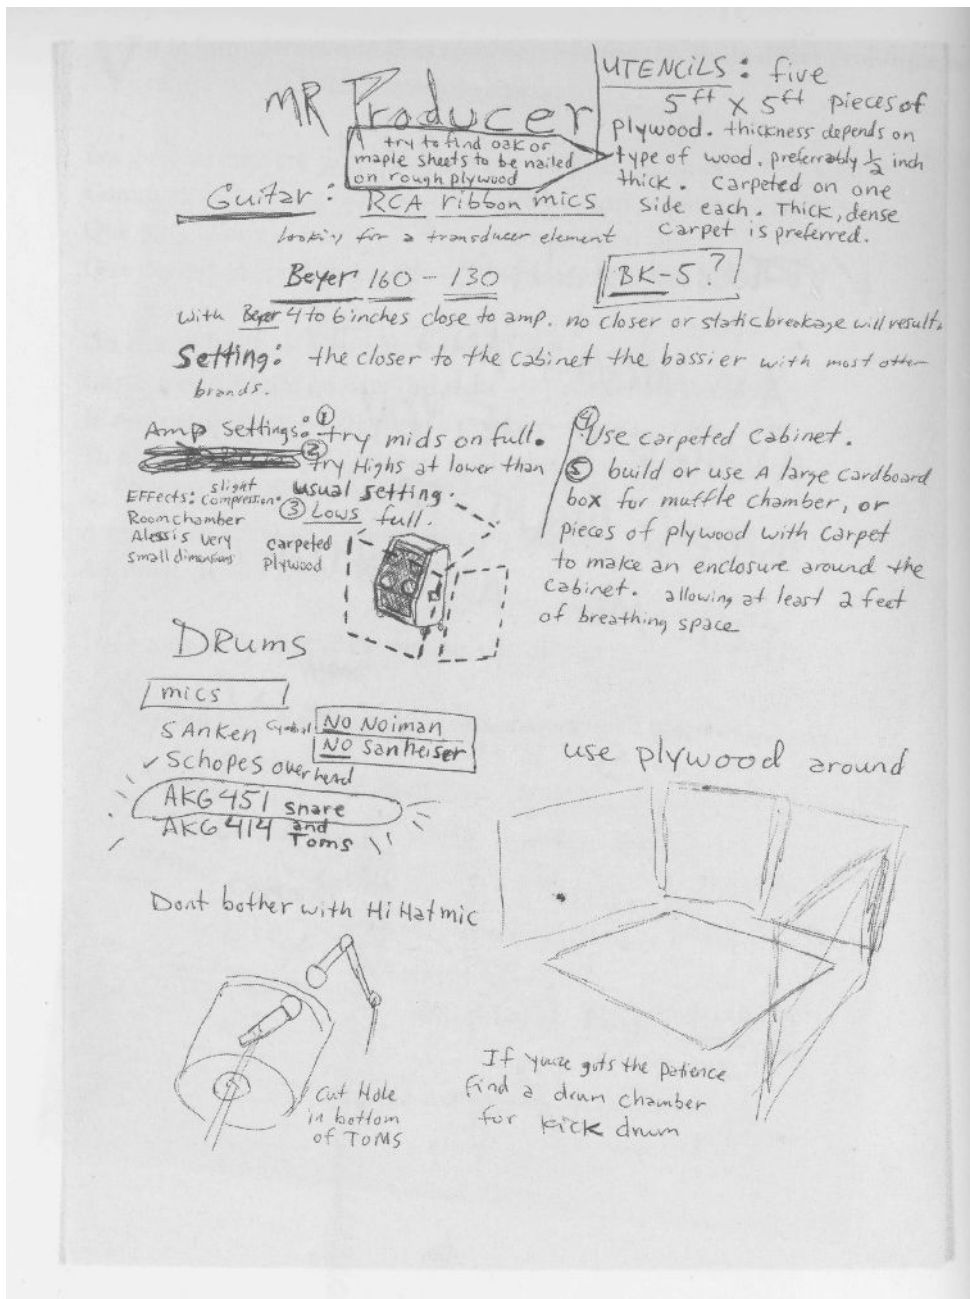 MR Producer
try to find oak or
maple sheets to be nailed
on rough plywood
UTENCILS: five
5ft X 5ft pieces of
plywood. thickness depends on
type of wood. preferrably ½ inch
thick. Carpeted on one
side each. Thick, dense
Carpet is preferred.
Guitar: RCA ribbon mics
looking for a transducer element
Beyer 160 - 130
BK-5?
with Beyer 4 to 6 inches close to amp. no closer or static breakage will result.
Setting: the closer to the cabinet the bassier with most other
brands.
Amp settings: ① try mids on full.
② try Highs at lower than
usual setting.
③ Lows full.
Effects: slight compression.
Room chamber
Alessis very
small dimensions
carpeted
plywood
④ Use carpeted Cabinet.
⑤ build or use A large cardboard
box for muffle chamber, or
pieces of plywood with carpet
to make an enclosure around the
cabinet. allowing at least 2 feet
of breathing space
DRums
mics
SAnken Cymbal
NO Noiman
NO Sanheiser
✓ Schopes overhead
AKG 451 snare
and
AKG 414 Toms
Dont bother with Hi Hat mic
cut Hole
in bottom
of TOMS
use plywood around
If youze gots the patience
find a drum chamber
for kick drum